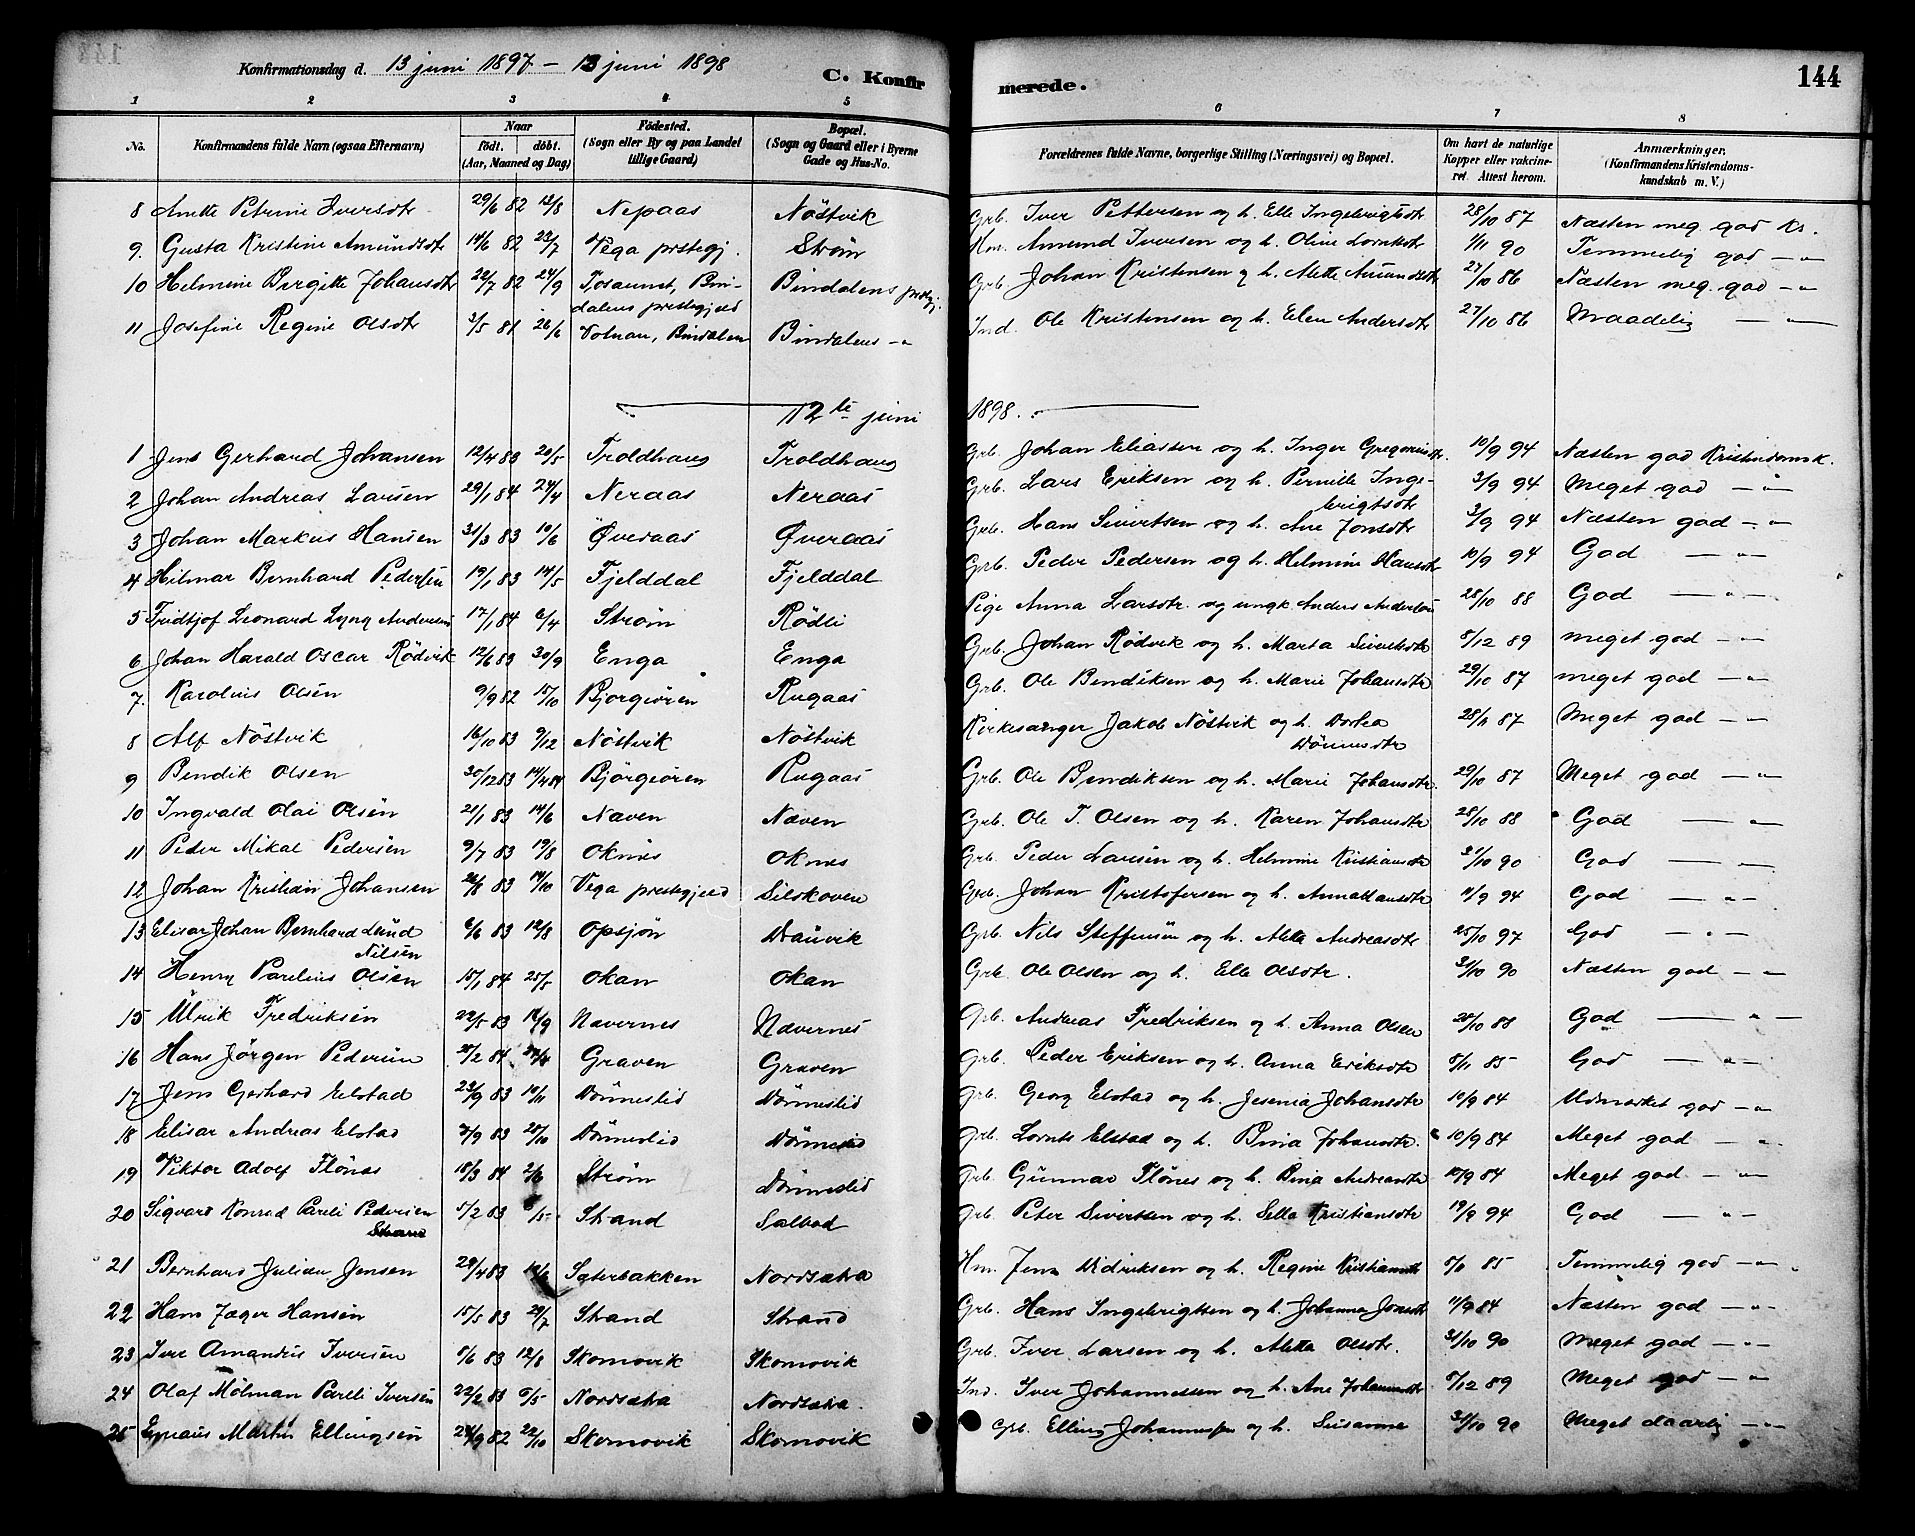 Konfirmationsdag d. 13 juni 1897 – 13 juni 1898 C. Konfirmerede. 144
1 2 3 4 5 6 7 8
No. Konfirmandens fulde Navn (ogsaa Efternavn) Naar födt. döbt. (Aar, Maaned og Dag) Födested. (Sogn eller By og paa Landet tillige Gaard) Bopæl. (Sogn og Gaard eller i Byerne Gade og Hus-No. Forældrenes fulde Navne, borgerlige Stilling (Næringsvei) og Bopæl. Om havt de naturlige Kopper eller vakcineret. Attest herom. Anmærkninger. (Konfirmandens Kristendomskundskab m. V.)
8 Anette Petrine Iversdtr 29/6 82 12/8 Nepaas Nöstvik Grb. Iver Pettersen og h. Elle Ingebrigtsdtr 28/10 87 Næsten meg. god Kr.
9. Gusta Kristine Amundsdtr 14/6 82 23/7 Vega prstegj. Ström Hm. Amund Iversen og h. Oline Lorntsdtr 1/11 90 Temmelig god – „
10 Helmine Birgitte Johansdtr 22/7 82 24/9 Tosaunet, Bindalens prestegjeld Bindalens prstgj. Grb. Johan Kristensen og h. Alette Amundsdtr 27/10 86 Næsten meg. god – „
11 Josefine Regine Olsdtr 3/5 81 26/6 Volnan, Bindalen Bindalens – „ Ind. Ole Kristensen og h. Elen Andersdtr 27/10 86 Maadelig – „ –
12te juni 1898.
1 Jens Gerhard Johansen 12/4 83 20/5 Troldhaug Troldhaug Grb. Johan Eliassen og h. Inger Gregoriusdtr. 10/9 94 Næsten god Kristendomsk.
2 Johan Andreas Larsen 29/1 84 24/4 Neraas Neraas Grb. Lars Eriksen og h. Pernille Ingebrigtsdtr 3/9 94 Meget god – „
3 Johan Markus Hansen 31/3 83 10/6 Överaas Øveraas Grb. Hans Sivertsen og h. Ane Jonsdtr 3/9 94 Næsten god – „
4 Hilmar Bernhard Pedersen 19/1 83 14/5 Fjelddal Fjelddal Grb. Peder Pedersen og h. Helmine Hansdtr 10/9 94 God – „ –
5 Fridtjof Leonard Lyng Andersen 17/1 84 6/4 Ström Rödli Pige Anna Larsdtr. og ungk. Anders Andersen 28/10 88 God – „ –
6 Johan Harald Oscar Rödvik 12/6 83 30/9 Enga Enga Grb. Johan Rödvik og h. Marta Sivertsdtr 8/12 89 meget god – „
7. Karolius Olsen 9/9 82 15/10 Bjorgiören Rugaas Grb. Ole Bendiksen og h. Marie Johansdtr 29/10 87 meget god – „
8 Alf Nöstvik 16/10 83 9/12 Nöstvik Nöstvik Kirkesanger Jakob Nöstvik og h. Dortea Dönnesdtr 28/11 87 Meget god – „
9 Bendik Olsen 30/12 83 14/4 84 Björgiören Rugaas Grb. Ole Bendiksen og h. Marie Johansdtr. 29/10 87 Meget god – „
10 Ingvald Olai Olsen 21/1 83 14/6 Næven Næven Grb. Ole T. Olsen og h. Karen Johansdtr 28/10 88 God – „
11 Peder Mikal Pedersen 9/7 83 19/8 Oknes Oknes Grb. Peder Larsen og h. Helmine Kristiansdtr 31/10 90 God – „
12 Johan Kristian Johansen 26/8 83 14/10 Vega prestegjeld Silskoven Grb. Johan Kristofersen og h. Anna Hansdtr 11/9 94 God – „ –
13 Elisar Johan Bernhard Lund Nilsen 6/6 83 12/8 Opsjön Dauvik Grb. Nils Steffensen og h. Aletta Andreasdtr 25/10 97 God – „ –
14 Henry Parelius Olsen 15/1 84 25/5 Okan Okan Grb. Ole Olsen og h. Elle Olsdtr. 31/10 90 Næsten god – „
15 Ulrik Fredriksen 22/5 83 16/9 Nævernes Nævernes Grb. Andreas Fredriksen og h. Anna Olsen 28/10 88 God – „ –
16 Hans Jörgen Pedersen 28/2 84 Graven Graven Grb. Peder Eriksen og h. Anna Eriksdtr 8/11 85 God – „ –
17 Jens Gerhard Elstad 23/9 83 10/11 Dönneslid Dönneslid Grb. Georg Elstad og h. Jesenia Johansdtr 10/9 84 Udmærket god – „
18 Elisar Andreas Elstad 3/9 83 28/10 Dönneslid Dönneslid Grb. Lornts Elstad og h. Bina Johansdtr. 10/9 84 Meget god – „
19 Viktor Adolf Flönes 18/3 84 2/6 Ström Dönneslid Grb. Gunnar Flönes og h. Bina Andreasdtr 10/9 84 Meget god – „
20 Sigvart Konrad Pareli Pedersen Strand 5/2 83 Strand Salbod Grb. Peter Sivertsen og h. Sella Kristiansdtr 19/9 94 God – „ –
21 Bernhard Julian Jensen 29/4 83 Sæterbakken Nordsætra Hm. Jens Didriksen og h. Regine Kristiansdtr 8/11 85 Temmelig god – „
22 Hans Jæger Hansen 15/5 83 29/7 Strand Strand Grb. Hans Ingebrigtsen og h. Johanna Jonsdtr 11/9 84 Næsten god – „
23 Iver Amandus Iversen 8/6 83 12/8 Skomovik Skomovik Grb. Iver Larsen og h. Aletta Olsdtr. 31/10 90 Meget god – „
24 Olaf Mölman Pareli Iversen 22/2 83 6/5 Nordsætra Nordsætra. Ind. Iver Johannessen og h. Ane Johannesdtr 8/12 89 Meget god – „
25 Martin Ellingsen 24/9 82 22/10 Skomovik Skomovik Grb. Elling Johannessen og h. Susanne 31/10 90 Meget daarlig – „